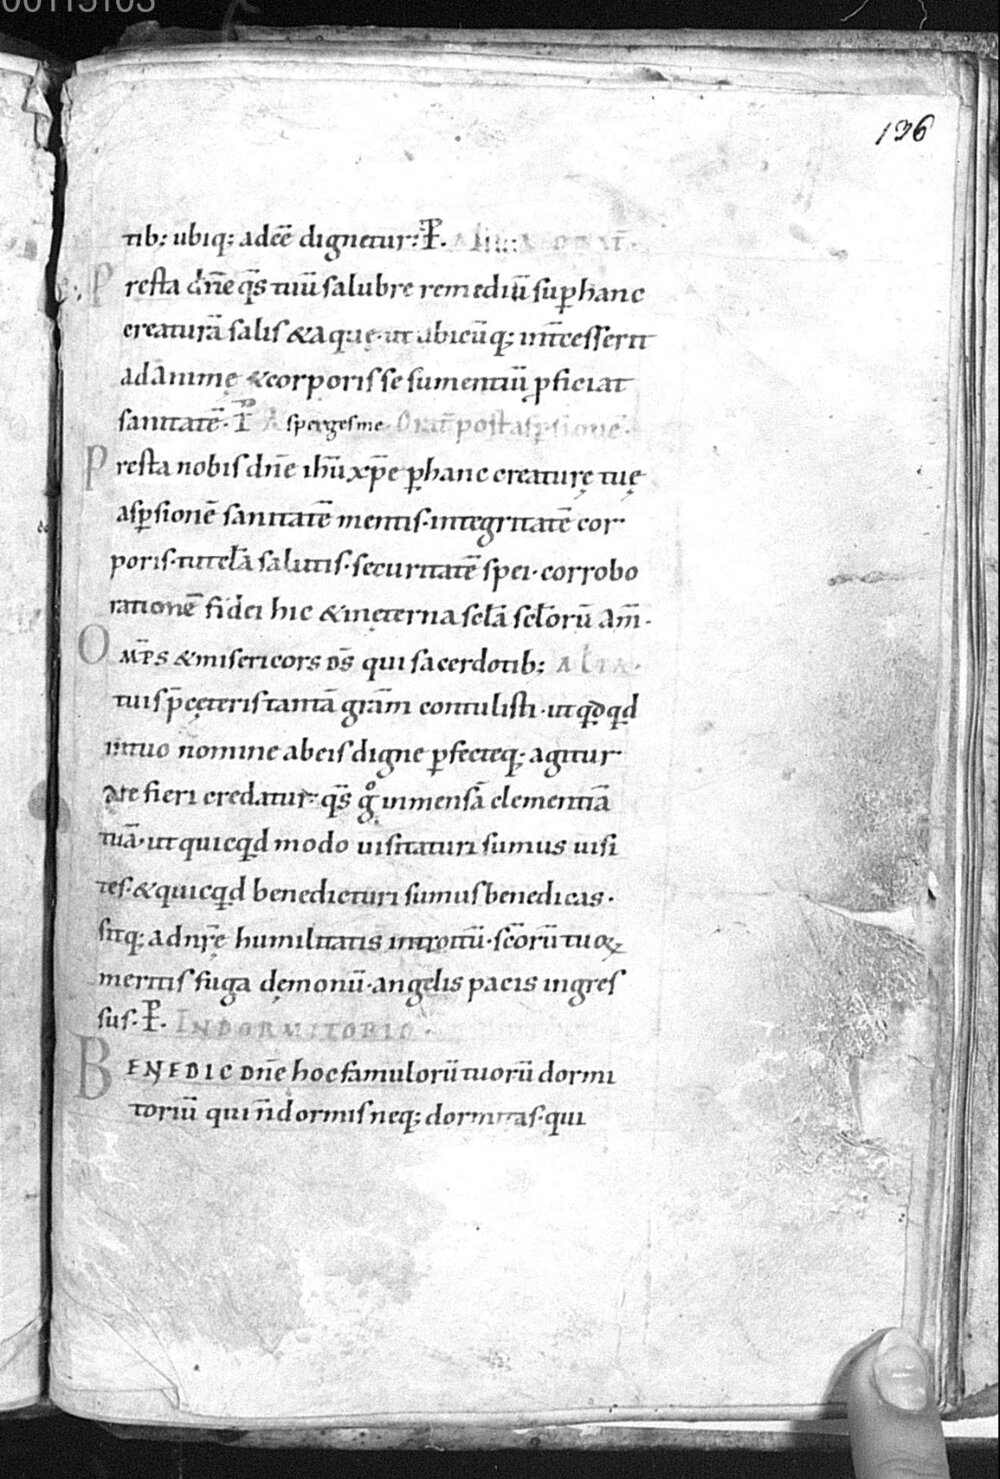 00115103
136
tib; ubiq; adeē dignetur. P.
Presta dn̄e qs̄ tuū salubre remediū sup̲ hanc
creaturā salis & aquę. ut ubicūq; int̄cesserit
ad animę & corporis se sumentiū p̲ficiat
sanitatē. P. Asperges me. Orat̄ post asp̲sionē.
Presta nobis dn̄e ihū xp̄e p̲ hanc creaturę tuę
asp̲sionē sanitatē mentis. integritatē cor
poris. tutelā salutis. securitatē spei. corrobo
rationē fidei hic & in ęterna scl̄a scl̄orū am̄.
OMP̄S & misericors DS̄ qui sacerdotib; ALIA.
tuis p̄ cęteris tantā grām contulisti. ut qd̲qd̲
in tuo nomine ab eis digne p̲fecteq; agitur
a te fieri credatur. qs̄ gº inmensā clementiā
tuā. ut quicqd̲ modo uisitaturi sumus uisi
tes. & quicqd̲ benedicturi sumus benedicas.
sitq; ad nr̄ę humilitatis introitū. sc̄orū tuoꝝ
meritis fuga dęmonū. angelis pacis ingres
sus. P. IN DORMITORIO.
BENEDIC Dn̄e hoc famulorū tuorū dormi
toriū qui n̄ dormis neq; dormitas. qui